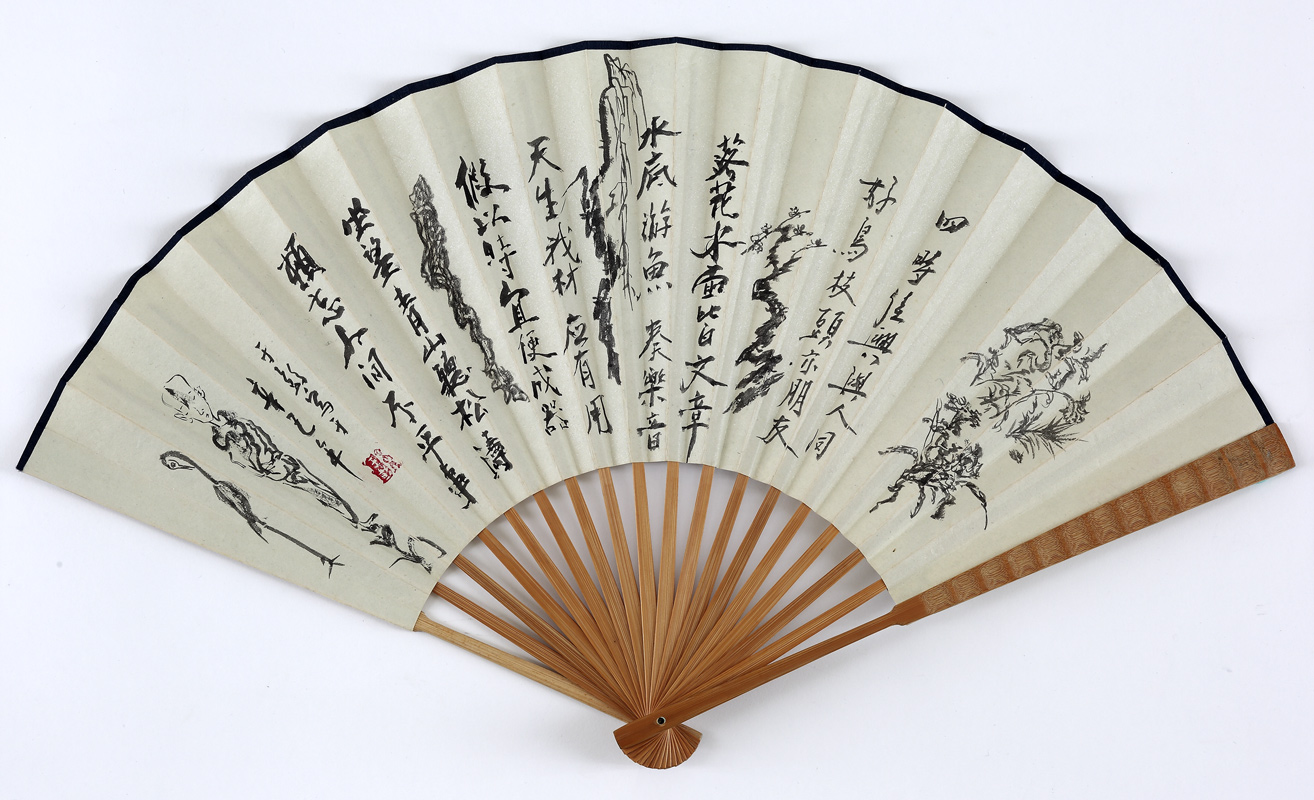 四時佳興與人同
好鳥枝頭亦朋友
落花水面皆文章
水底游魚奏樂音
天生我材应有用
假以時宜便成器
坐望青山聽松濤
頓忘人间不平事
辛巳年